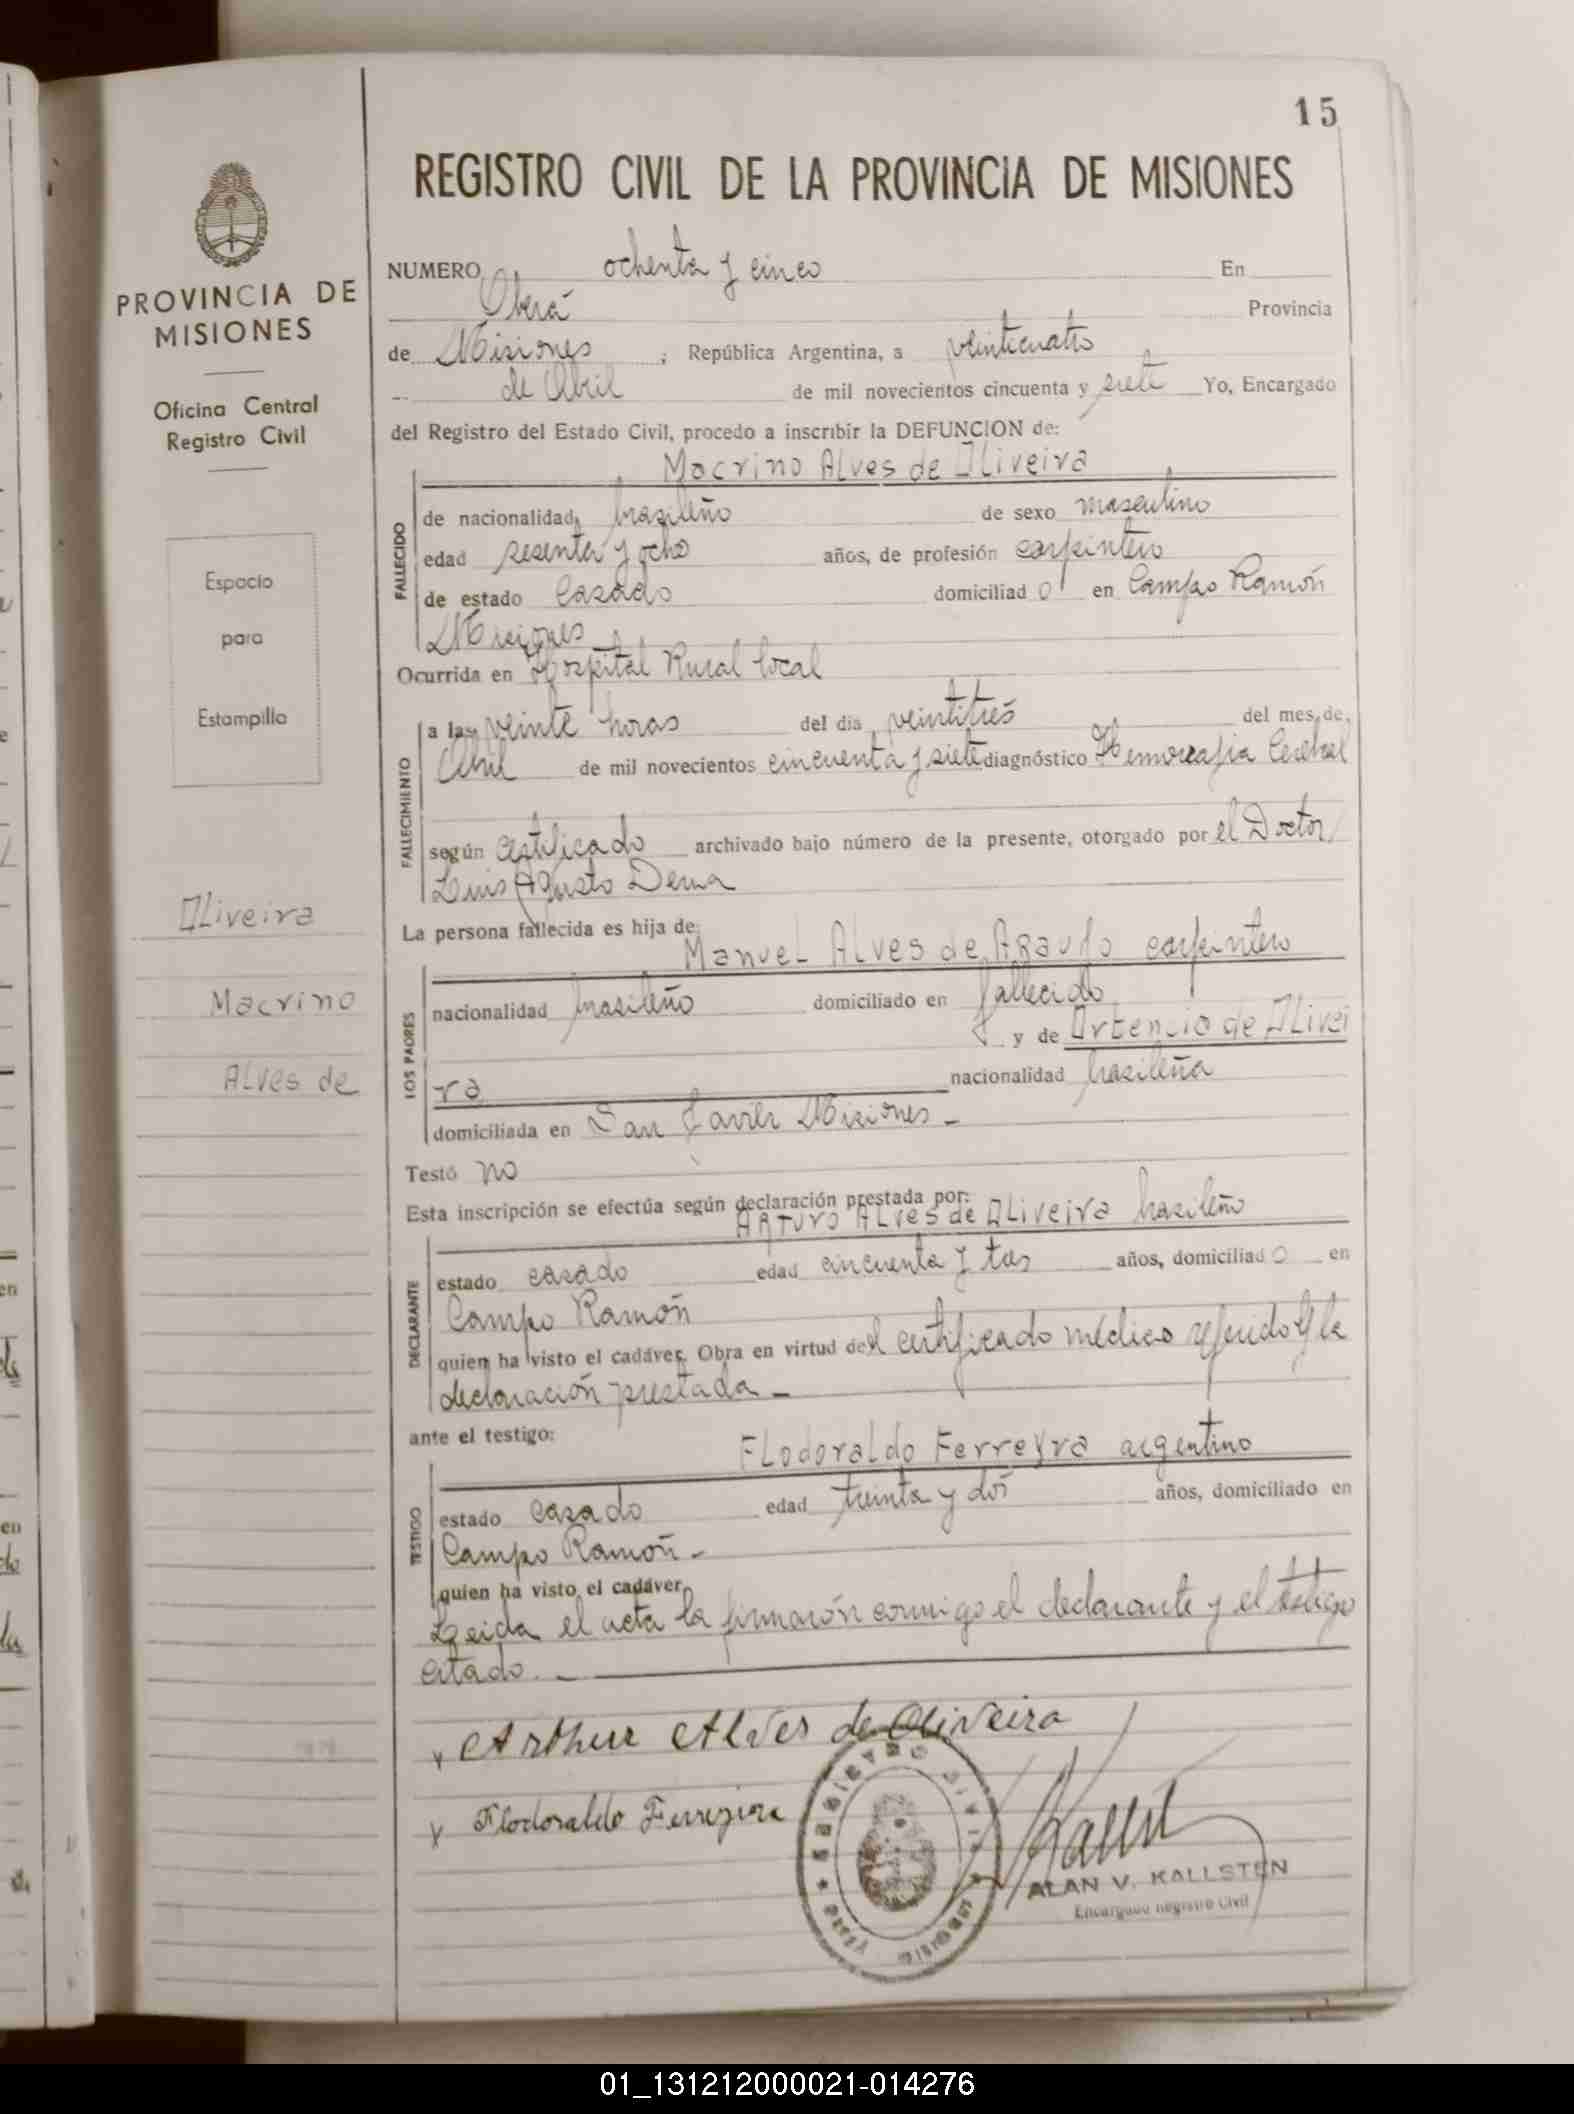 15
REGISTRO CIVIL DE LA PROVINCIA DE MISIONES
PROVINCIA DE
MISIONES
Oficina Central
Registro Civil
Espacio
para
Estampilla
Oliveira
Macrino
Alves de
NUMERO ochenta y cinco En
Oberá Provincia
de Misiones ; República Argentina, a veinticuatro
de Abril de mil novecientos cincuenta y siete Yo, Encargado
del Registro del Estado Civil, procedo a inscribir la DEFUNCION de:
Macrino Alves de Oliveira
FALLECIDO
de nacionalidad brasileño de sexo masculino
edad sesenta y ocho años, de profesión carpintero
de estado Casado domiciliad o en Campo Ramón
Misiones
Ocurrida en Hospital Rural local
FALLECIMIENTO
a las veinte horas del día veintitrés del mes de
Abril de mil novecientos cincuenta y siete diagnóstico Hemorragia Cerebral
según certificado archivado bajo número de la presente, otorgado por el Doctor
Luis Agusto Derna
La persona fallecida es hija de:
Manuel Alves de Araujo carpintero
LOS PADRES
nacionalidad brasileño domiciliado en fallecido
y de Ortencio de Olivei
ra nacionalidad brasileña
domiciliada en San Javier Misiones -
Testó no
Esta inscripción se efectúa según declaración prestada por:
Arturo Alves de Oliveira brasileño
DECLARANTE
estado casado edad cincuenta y tres años, domiciliad o en
Campo Ramón
quien ha visto el cadáver. Obra en virtud del certificado médico referido y la
declaración prestada -
ante el testigo:
Flodoraldo Ferreyra argentino
TESTIGO
estado casado edad treinta y dos años, domiciliado en
Campo Ramón -
quien ha visto el cadáver
Leida el acta la firmarón conmigo el declarante y el testigo
citado. -
x Arthur Alves de Oliveira
x Flodoraldo Ferreyra
REGISTRO CIVIL
Kallsten
ALAN V. KALLSTEN
Encargado Registro Civil
01_131212000021-014276